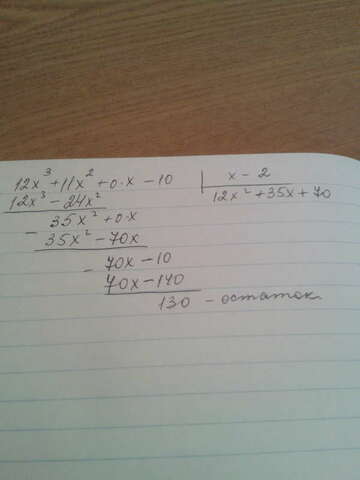 12x³ + 11x² + 0·x − 10 | x − 2
12x³ − 24x² | 12x² + 35x + 70
− 35x² + 0·x
35x² − 70x
− 70x − 10
70x − 140
130 − остаток